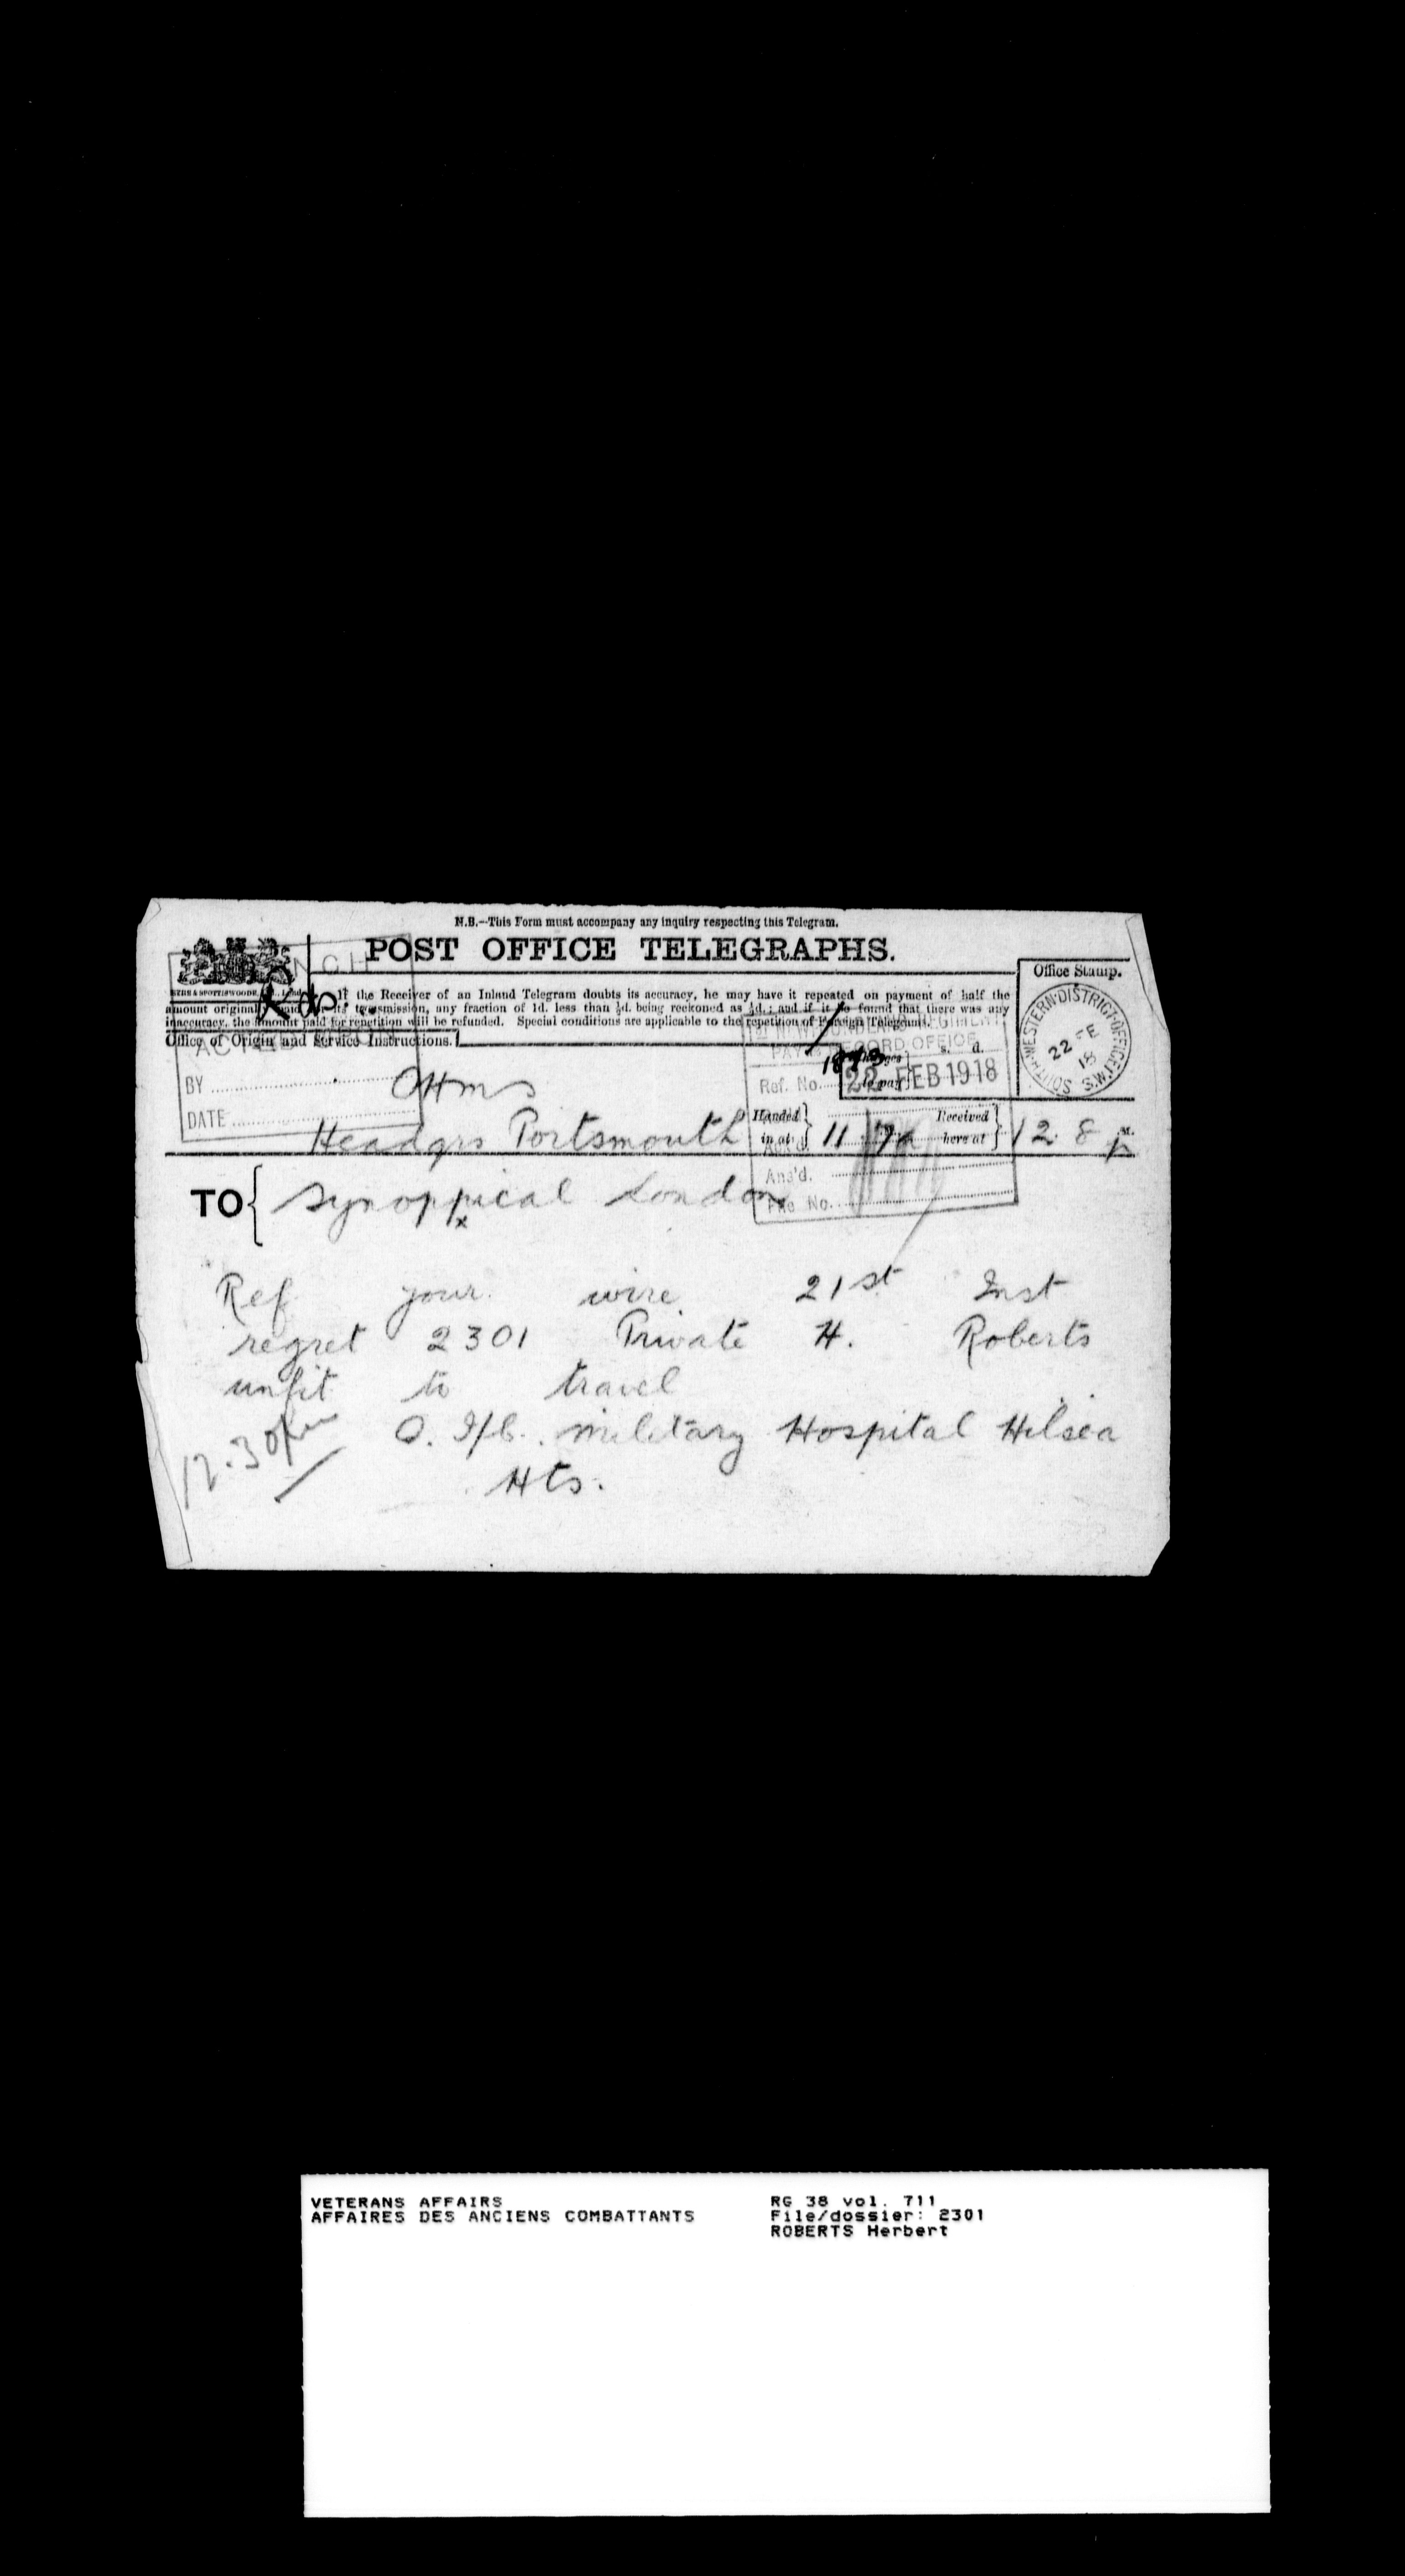 N.B.—This Form must accompany any inquiry respecting this Telegram.
POST OFFICE TELEGRAPHS.
Office Stamp.
If the Receiver of an Inland Telegram doubts its accuracy, he may have it repeated on payment of half the
amount original its transmission, any fraction of 1d. less than ½d. being reckoned as ½d.; and if it be found that there was any
inaccuracy, the amount paid for repetition will be refunded. Special conditions are applicable to the repetition of Foreign Telegrams.
Office of Origin and Service Instructions.
SOUTH-WESTERN-DISTRICT-OFFICE S.W.
22 FE
18
ACTED UPON
BY
DATE
1st NEWFOUNDLAND REGIMENT
PAY & RECORD OFFICE
Charges to pay s. d.
Ref. No. 1873
22 FEB 1918
Ack'd.
Ans'd.
File No.
OHMS
Headqrs Portsmouth
Handed in at 11 Received here at 12 8 p M.
TO Synoppical London
x
Ref your wire 21st Inst
regret 2301 Private H. Roberts
unfit to travel
O. I/C. Military Hospital Hilsea
Hts.
12.30pm
VETERANS AFFAIRS
AFFAIRES DES ANCIENS COMBATTANTS
RG 38 vol. 711
File/dossier: 2301
ROBERTS Herbert